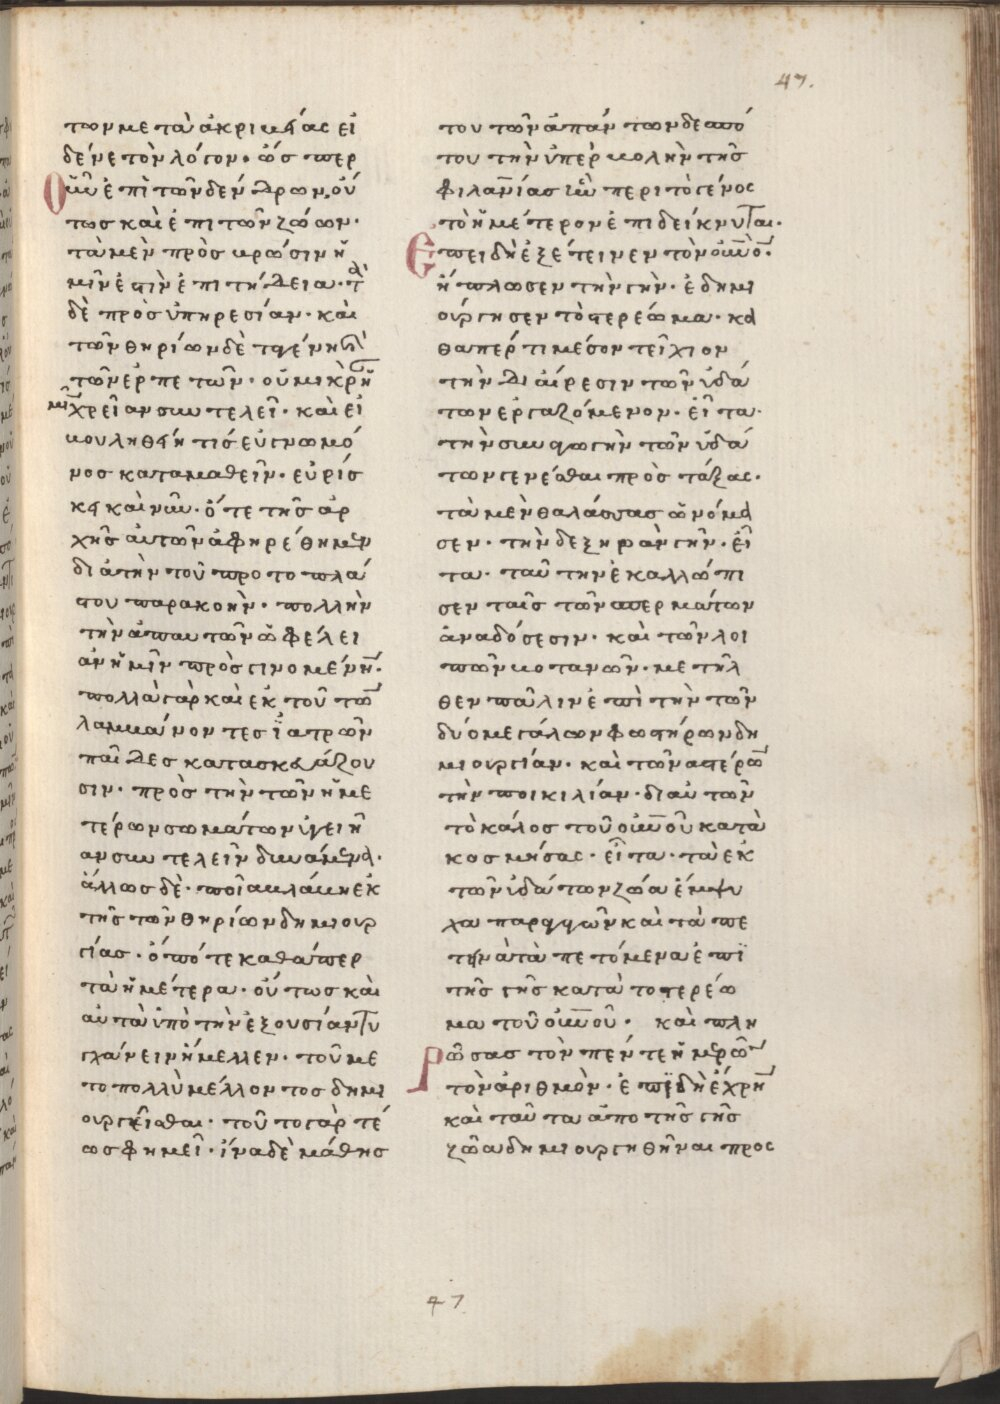 47.
των μετὰ ἀκριβείας εἰ
δέναι τὸν λόγον. ὥσπερ
οὖν ἐπὶ τῶν δένδρων, οὕ
τως καὶ ἐπὶ τῶν ζώων.
τὰ μὲν πρὸς βρῶσιν ἡ
μῖν ἐστὶν ἐπιτήδεια. τὰ
δὲ πρὸς ὑπηρεσίαν. καὶ
τῶν θηρίων δὲ τὸ γένος καὶ
τῶν ἑρπετῶν. οὐ μικρὴν ἡ
μῖν χρείαν συντελεῖ. καὶ εἰ
βουληθείη τίς εὐγνωμό
νως καταμαθεῖν. εὑρίσ
κει καὶ νῦν. ὅτε τῆς ἀρ
χῆς αὐτῶν ἀφηρέθημεν
διὰ τὴν τοῦ πρωτοπλά
στου παρακοήν. πολλὴν
τὴν ἀπ αυτῶν ὠφέλει
αν ἡμῖν προσγινομένην.
πολλὰ γὰρ καὶ ἐκ τούτων
λαμβάνοντες ἰατρῶν
παῖδες κατασκευάζου
σιν. πρὸς τὴν τῶν ἡμε
τέρων σωμάτων ὑγεῖ
αν συντελεῖν δυνάμενα.
ἄλλως δὲ. ποία βλάβη ἐκ
τῆς τῶν θηρίων δημιουρ
γίας. ὁπότε καθάπερ
τὰ ἡμέτερα. οὕτως καὶ
αὐτὰ ὑπὸ τὴν ἐξουσίαν τυ
γχάνειν ἤμελλεν. τοῦ με
τοπολλὺ μέλλοντος δημι
ουργεῖσθαι. τοῦτο γὰρ τέ
ως φημεῖ. ἵνα δὲ μάθης
του τῶν ἁπάντων δεσπό
του τὴν ὑπερβολὴν τῆς
φιλανίας ἣν περὶ τὸ γένος
τὸ ἡμέτερον ἐπιδείκνυται.
Ἐπειδὴ ἐξέτεινεν τὸν οὐνόν.
ἥπλωσεν τὴν γῆν. ἐδημι
ούργησεν τὸ στερέωμα. κα
θαπέρ τι μέσον τειχίον
τὴν διαίρεσιν τῶν ὑδά
των ἐργαζόμενον. εἶτα.
τὴν συναγωγὴν τῶν ὑδά
των γενέσθαι προστάξας.
τὰ μὲν θαλάσσας ὠνόμα
σεν. τὴν δὲ ξηρὰν γῆν. εἶ
τα. ταύτην ἐκαλλώπι
σεν ταῖς τῶν σπερμάτων
ἀναδόσεσιν. καὶ τῶν λοι
πῶν βοτανῶν. μετῆλ
θεν πάλιν ἐπὶ τὴν τῶν
δύο μεγάλων φωστήρων δη
μιουργίαν. καὶ τῶν ἀστέρων
τὴν ποικιλίαν. δι αὐτῶν
τὸ κάλος τοῦ οὐνοῦ κατα
κοσμήσας. εἶτα. τὰ ἐκ
τῶν ὑδάτων ζῶα ἔμψυ
χα παραγαγὼν καὶ τὰ πε
τηνὰ τὰ πετόμενα ἐπὶ
τῆς γῆς κατὰ τὸ στερέω
μα τοῦ οὐνοῦ. καὶ πλη
ρώσας τὸν πέντε ἡμερῶν
τὸν ἀριθμὸν. ἐπειδὴ ἐχρῆν
καὶ ταῦτα ἀπὸ τῆς γῆς
ζῶα δημιουργηθῆναι προς
47